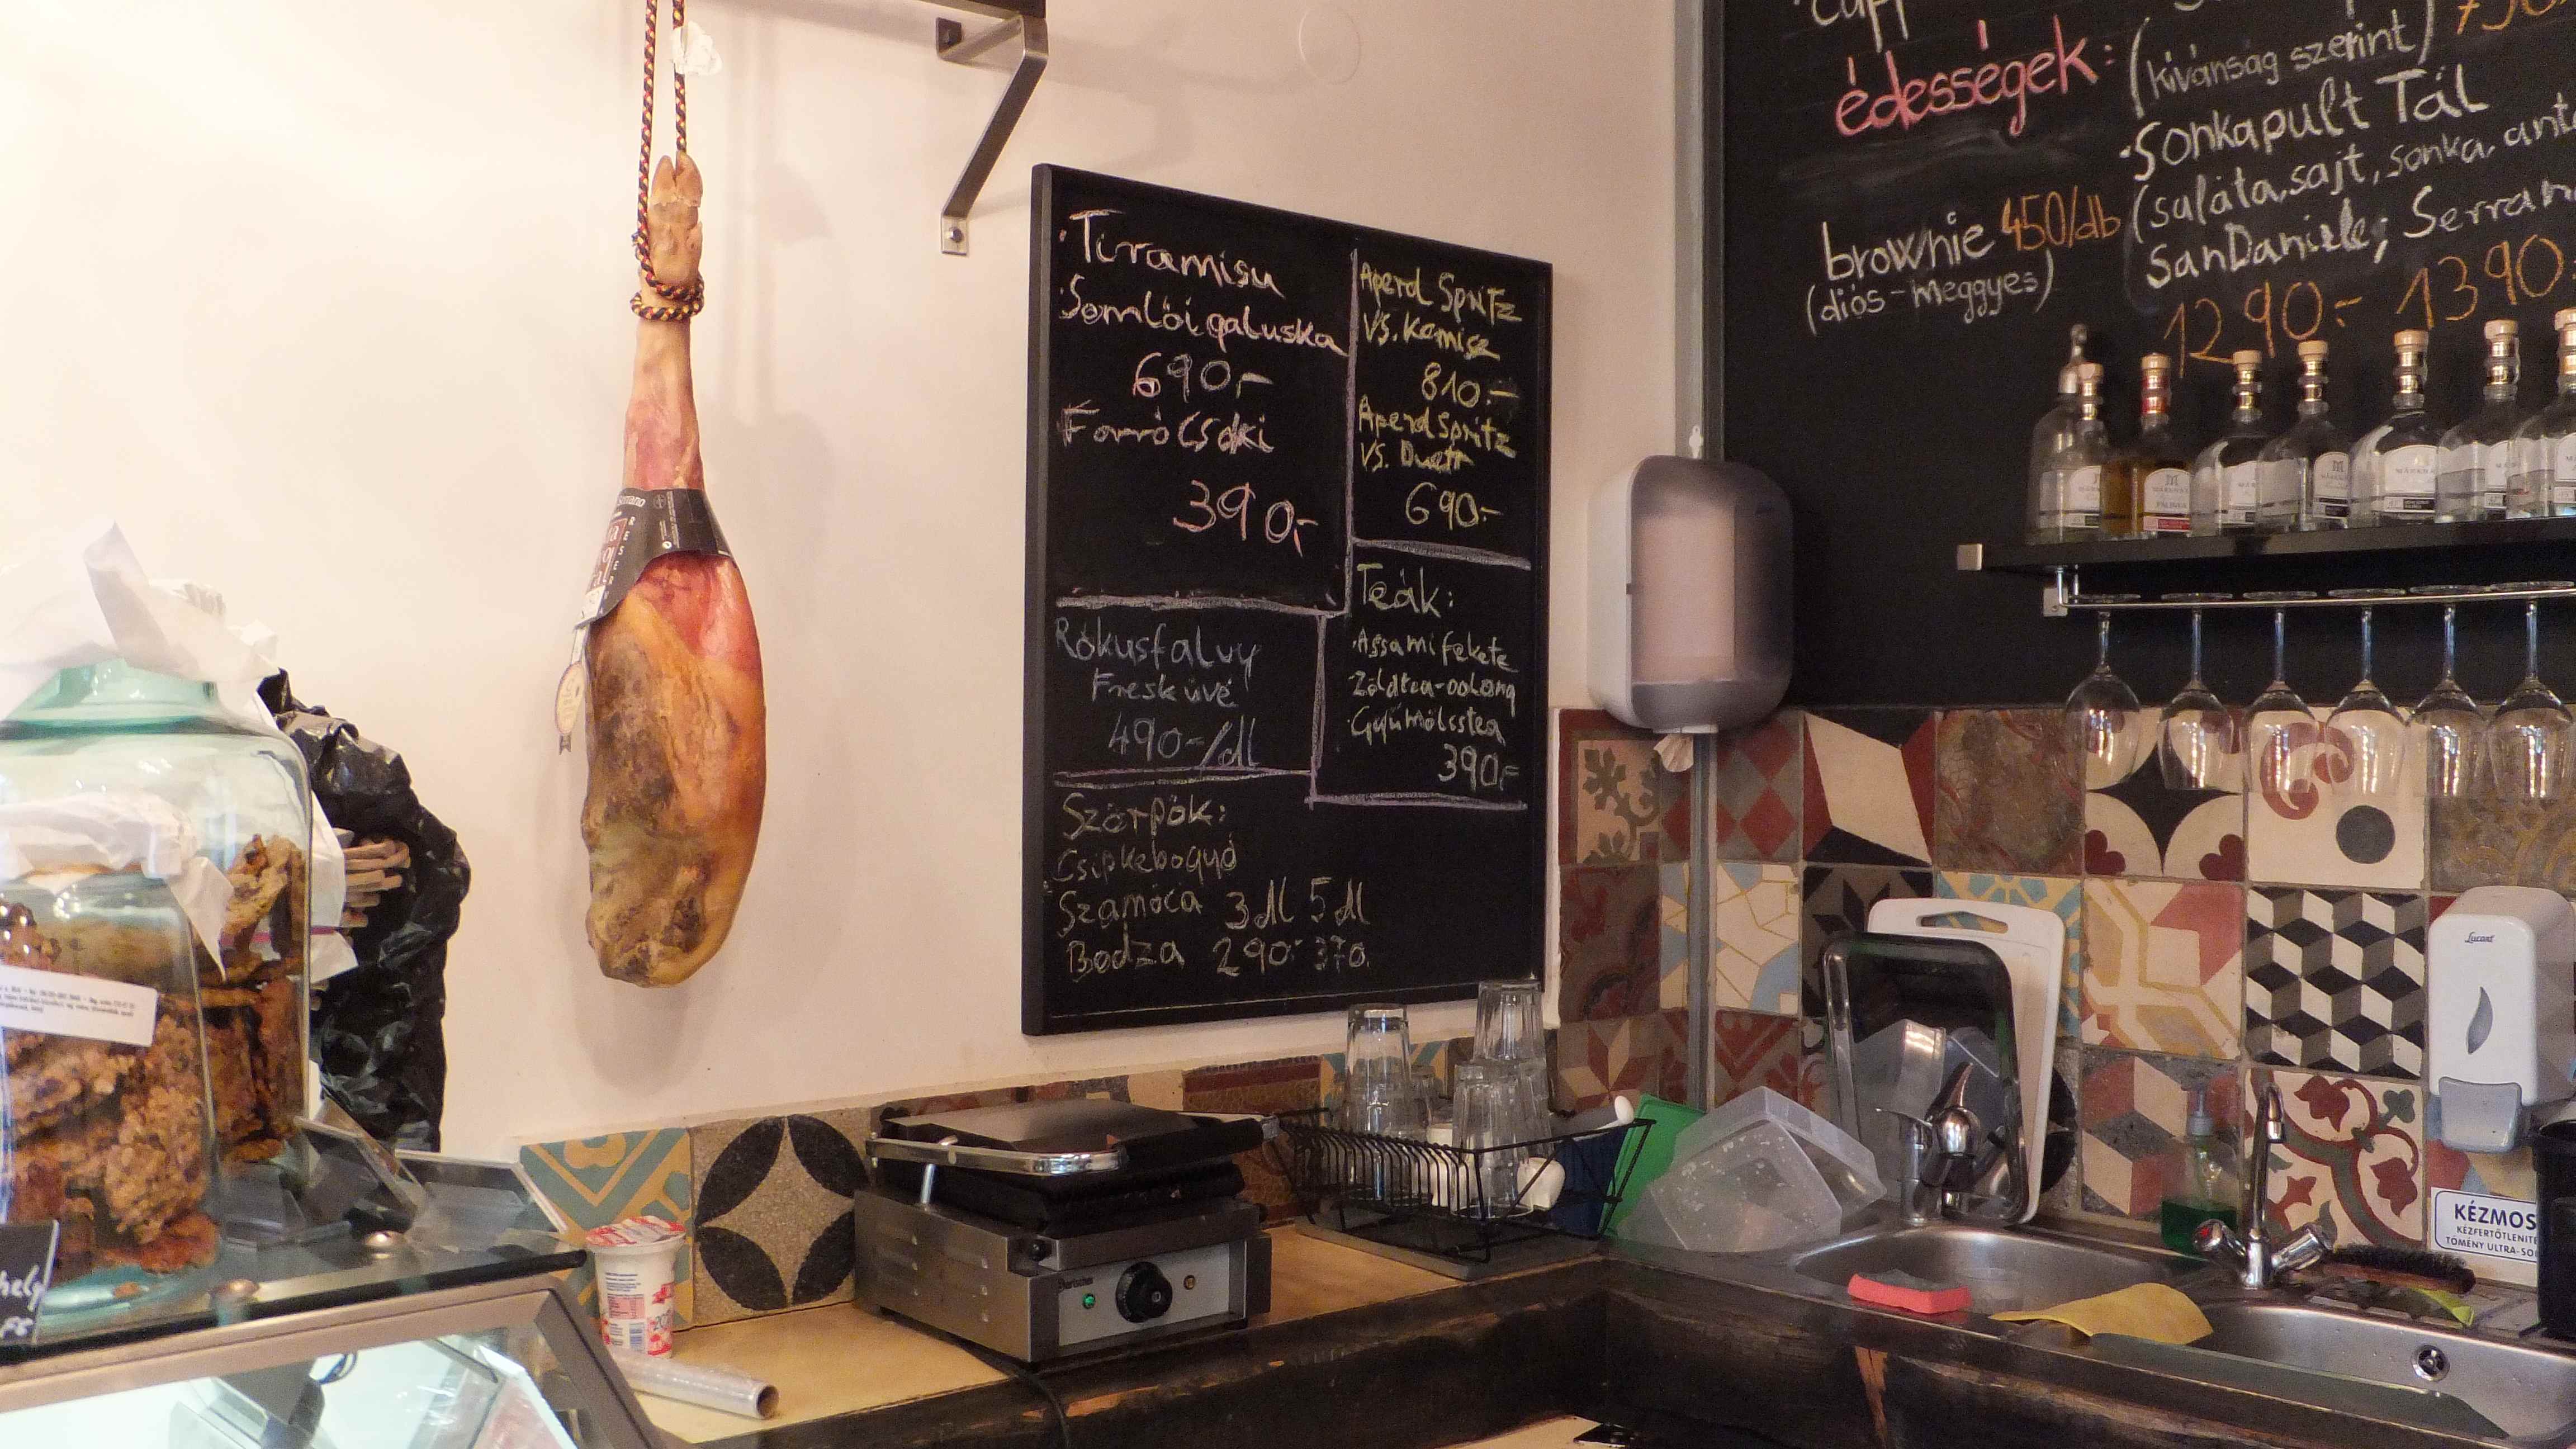 ·Tiramisu
·Somlói galuska
690,-
Forró Csoki
390,-
Aperol Spritz
VS. Kamise
810.-
Aperol Spritz
VS. Duett
690.-
Rókusfalvy
Fresküvé
490-/dl
Teák:
·Assami fekete
·Zöldtea-oolong
·Gyümölcstea
390.-
Szörpök:
Csipkebogyó
Szamóca 3dl 5dl
Bodza 290.- 370.
édességek:
brownie 450/db
(diós-meggyes)
(kívánság szerint)
·Sonkapult Tál
(saláta, sajt, sonka,
SanDaniele; Serran
1290.- 1390.
Lucart
KÉZMOS
KÉZFERTŐTLENÍTE
TÖMÉNY ULTRA-SO